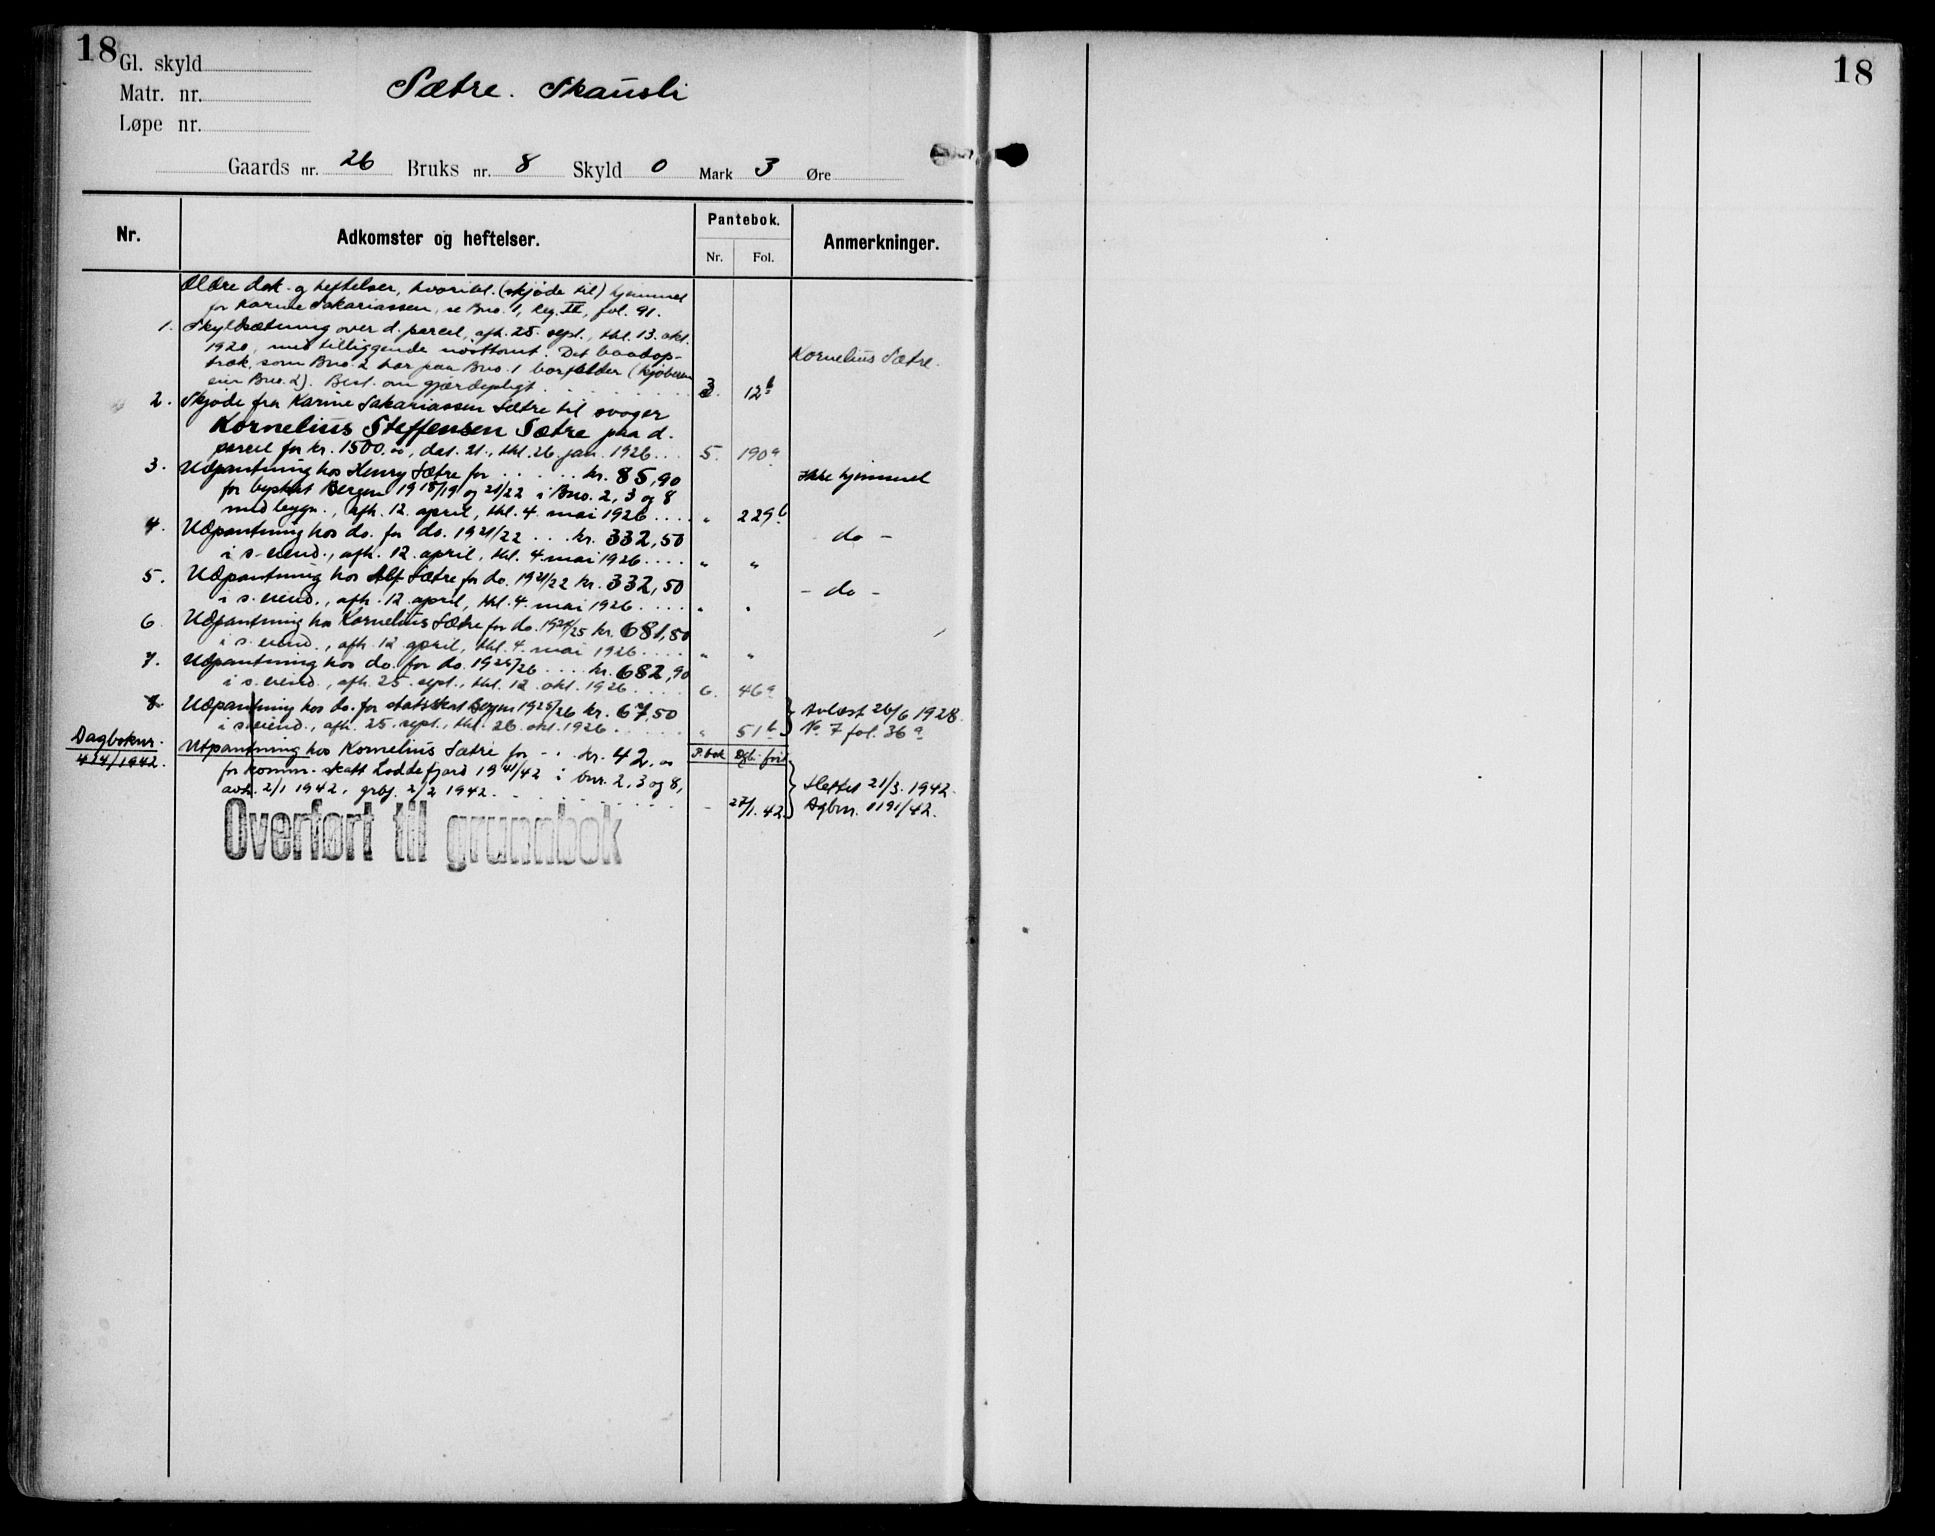 18
Gl. skyld
Matr. nr.
Løpe nr.
Sætre. Skausli
Gaards nr. 26 Bruks nr. 8 Skyld 0 Mark 3 Øre
Nr.
Adkomster og heftelser.
Pantebok.
Nr. Fol.
Anmerkninger.
Ældre dok. og heftelser, hvoribl. (skjøde til) hjemmel
for Karine Sakariassen, se Bno. 1, reg. II, fol. 91.
1. Skyldsætning over d. parcel, afh. 25. sept., thl. 13. okt.
1920, med tilliggende nøsttomt. Det baadop-
træk, som Bno. 2 har paa Bno. 1 bortfalder (kjøberen
eier Bno. 2). Best. om gjærdepligt . . . 3. 12b
Kornelius Sætre.
2. Skjøde fra Karine Sakariassen Sætre til svoger
Kornelius Steffensen Sætre paa d.
parcel for kr. 1500.00, dat. 21., thl. 26. jan. 1926 . . . 5. 190a
3. Udpantning hos Henry Sætre for . . . . kr. 85,90
for byskat Bergen 1918/19 og 21/22 i Bno. 2, 3 og 8
med bygn., afh. 12. april, thl. 4. mai 1926 . . . . " 229b
Ikke hjemmel
4. Udpantning hos do. for do. 1921/22 . . . kr. 332,50
i s. eiend., afh. 12. april, thl. 4. mai 1926 . . . . " "
- do -
5. Udpantning hos Alf Sætre for do. 1921/22 kr. 332,50
i s. eiend., afh. 12. april, thl. 4. mai 1926 . . . . " "
- do -
6. Udpantning hos Kornelius Sætre for do. 1924/25 kr. 681,50
i s. eiend., afh. 12. april, thl. 4. mai 1926 . . . . " "
7. Udpantning hos do. for do. 1925/26 . . . . kr. 682,90
i s. eiend., afh. 25. sept., thl. 12. okt. 1926 . . . . 6. 46a
8. Udpantning hos do. for statsskat Bergen 1925/26 kr. 67,50
i s. eiend., afh. 25. sept., thl. 26. okt. 1926 . . . . " 51b
Avlæst 26/6 1928.
No. 7 fol. 36a
Dagboknr.
414/1942.
Utpantning hos Kornelius Sætre for - . . kr. 42.00
for komm. skatt Loddefjord 1941/42 i bnr. 2, 3 og 8,
avh. 2/1 1942, grbf. 2/2 1942. . . . . . - 27/1. 42
P. bok
Slettet 21/3. 1942.
Dgbnr. 1191/42.
Overført til grunnbok
18